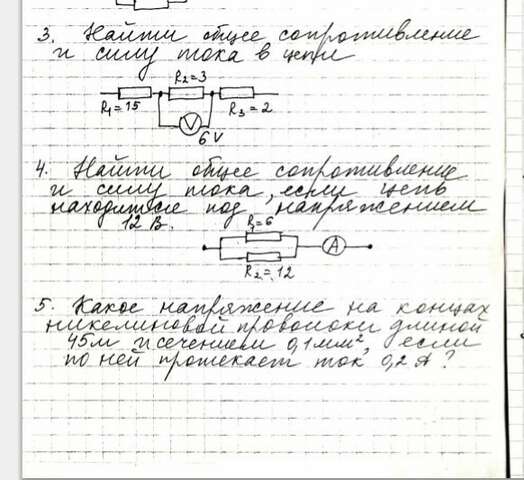 3. Найти общее сопротивление
и силу тока в цепи
R₂=3
R₁=15
R₃=2
V
6V
4. Найти общее сопротивление
и силу тока, если цепь
находится под напряжением
12 В.
R₁=6
A
R₂=12
5. Какое напряжение на концах
никелиновой проволоки длиной
45м и сечением 0,1мм², если
по ней протекает ток 0,2 А?